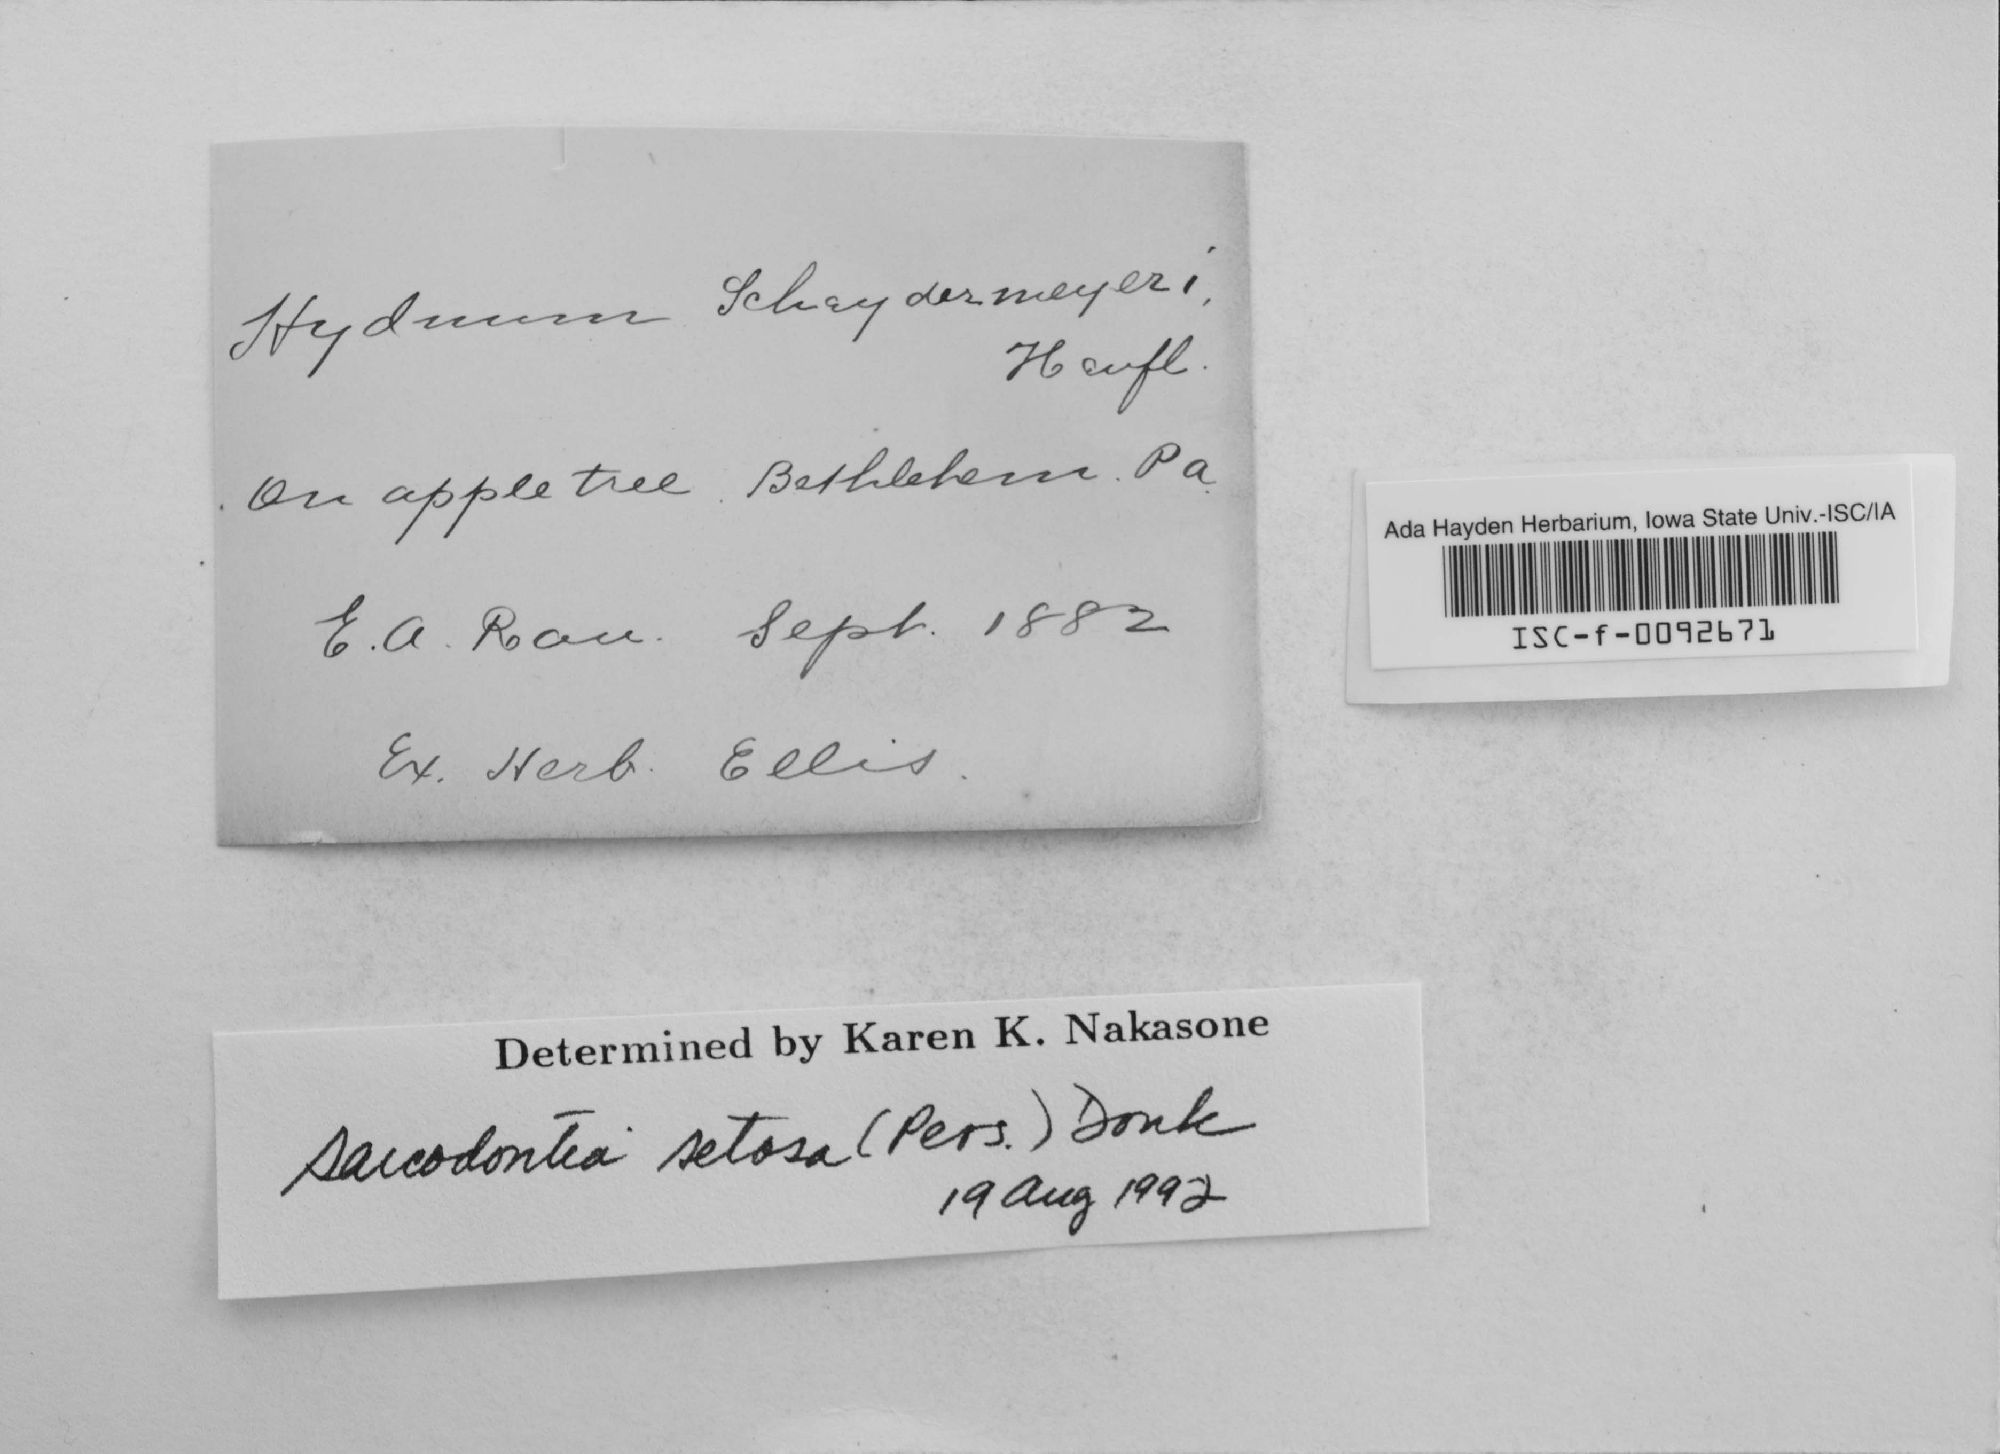 Hydnum Schaydermeyeri,
Heufl.
On apple tree. Bethlehem. Pa.
E. A. Rau. Sept. 1882
Ex. Herb. Ellis.
Ada Hayden Herbarium, Iowa State Univ.-ISC/IA
ISC-f-0092671
Determined by Karen K. Nakasone
Sarcodontia setosa (Pers.) Donk
19 Aug 1992